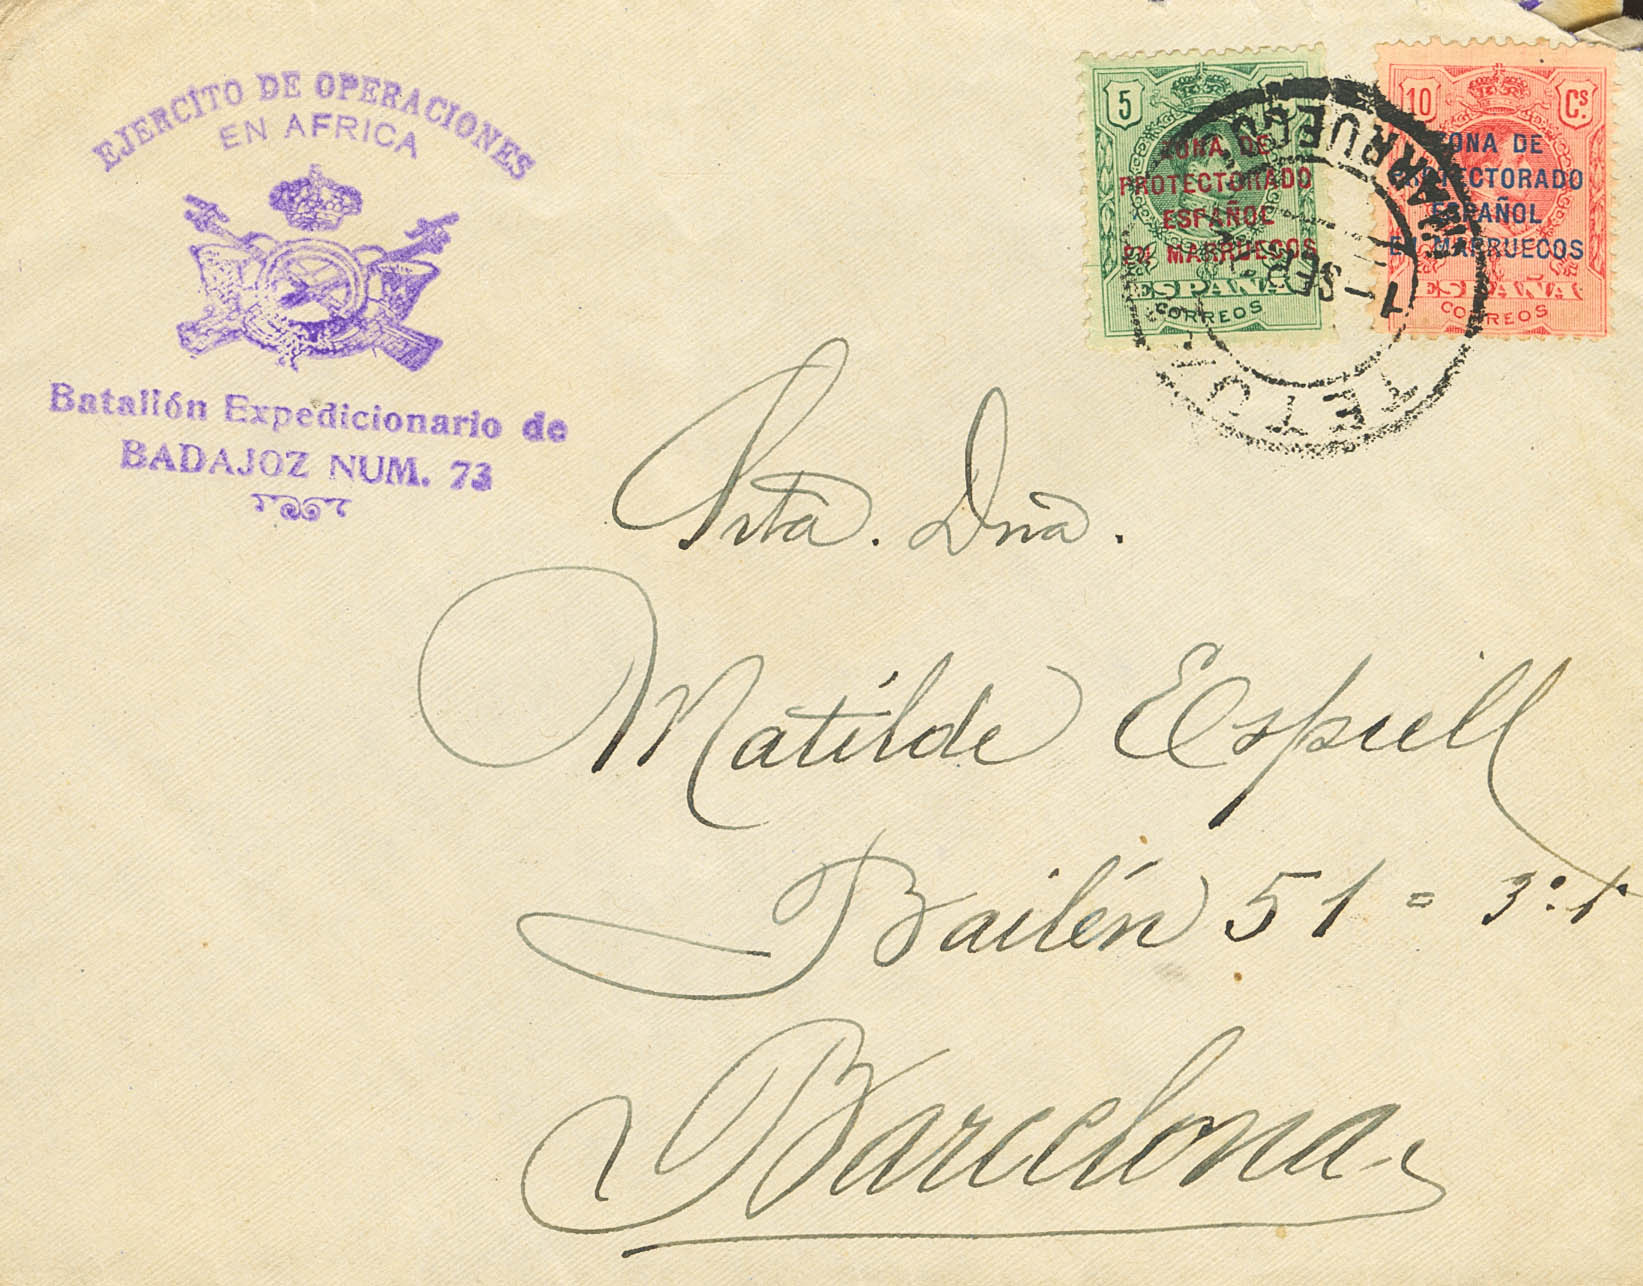 EJERCITO DE OPERACIONES
EN AFRICA
Batallón Expedicionario de
BADAJOZ NUM. 73
5
ZONA DE
PROTECTORADO
ESPAÑOL
EN MARRUECOS
ESPAÑA
CORREOS
10 Cs.
ZONA DE
PROTECTORADO
ESPAÑOL
EN MARRUECOS
ESPAÑA
CORREOS
MARRUECO
1 - SEP
TETU
Srta. Dña.
Matilde Espiell
Bailén 51 = 3º. 1ª
Barcelona